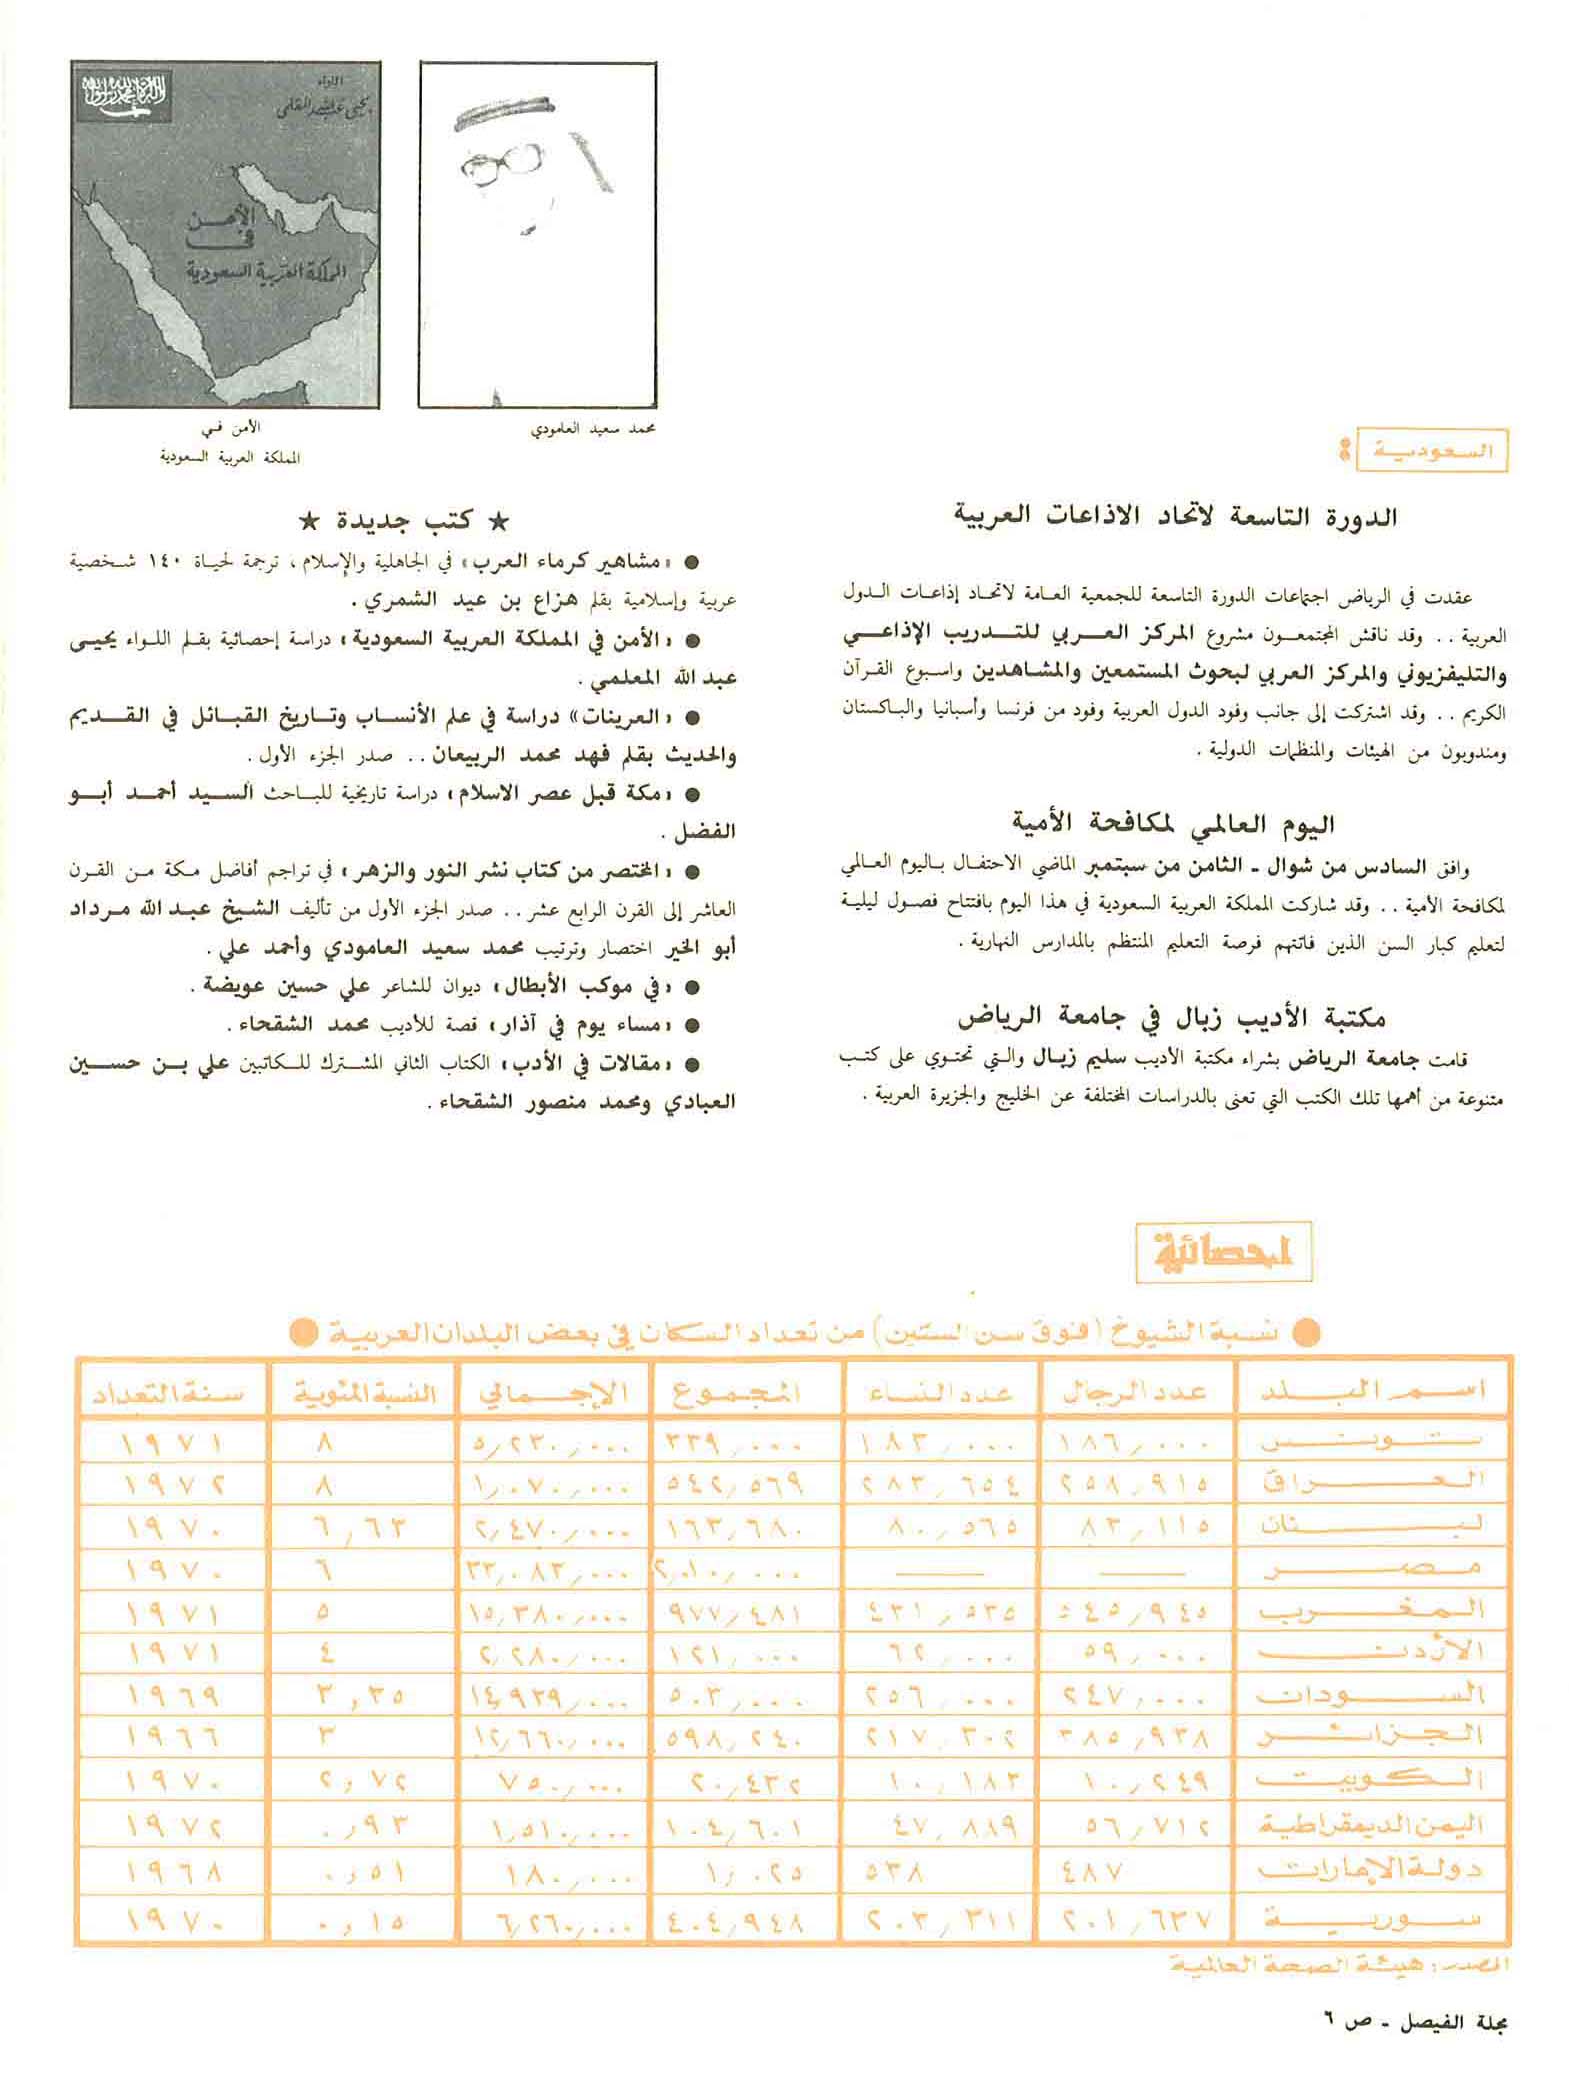 اللواء
يحيى عبد الله المعلمي
الأمن
في
المملكة العربية السعودية
الأمن في
المملكة العربية السعودية
محمد سعيد العامودي
السعودية :
الدورة التاسعة لاتحاد الاذاعات العربية
عقدت في الرياض اجتماعات الدورة التاسعة للجمعية العامة لاتحاد إذاعات الدول
العربية .. وقد ناقش المجتمعون مشروع المركز العربي للتدريب الإذاعي
والتليفزيوني والمركز العربي لبحوث المستمعين والمشاهدين واسبوع القرآن
الكريم .. وقد اشتركت إلى جانب وفود الدول العربية وفود من فرنسا وأسبانيا والباكستان
ومندوبون من الهيئات والمنظمات الدولية .
اليوم العالمي لمكافحة الأمية
وافق السادس من شوال - الثامن من سبتمبر الماضي الاحتفال باليوم العالمي
لمكافحة الأمية .. وقد شاركت المملكة العربية السعودية في هذا اليوم بافتتاح فصول ليلية
لتعليم كبار السن الذين فاتتهم فرصة التعليم المنتظم بالمدارس النهارية .
مكتبة الأديب زبال في جامعة الرياض
قامت جامعة الرياض بشراء مكتبة الأديب سليم زبال والتي تحتوي على كتب
متنوعة من أهمها تلك الكتب التي تعنى بالدراسات المختلفة عن الخليج والجزيرة العربية .
★ كتب جديدة ★
● «مشاهير كرماء العرب» في الجاهلية والإسلام ، ترجمة لحياة ١٤٠ شخصية
عربية وإسلامية بقلم هزاع بن عيد الشمري .
● «الأمن في المملكة العربية السعودية» دراسة إحصائية بقلم اللواء يحيى
عبد الله المعلمي .
● «العرينات» دراسة في علم الأنساب وتاريخ القبائل في القديم
والحديث بقلم فهد محمد الربيعان .. صدر الجزء الأول .
● «مكة قبل عصر الاسلام» دراسة تاريخية للباحث السيد أحمد أبو
الفضل .
● «المختصر من كتاب نشر النور والزهر» في تراجم أفاضل مكة من القرن
العاشر إلى القرن الرابع عشر .. صدر الجزء الأول من تأليف الشيخ عبد الله مرداد
أبو الخير اختصار وترتيب محمد سعيد العامودي وأحمد علي .
● «في موكب الأبطال» ديوان للشاعر علي حسين عويضة .
● «مساء يوم في آذار» قصة للأديب محمد الشقحاء .
● «مقالات في الأدب» الكتاب الثاني المشترك للكاتبين علي بن حسين
العبادي ومحمد منصور الشقحاء .
احصائية
● نسبة الشيوخ (فوق سن الستين) من تعداد السكان في بعض البلدان العربية ●
اسم البلد عدد الرجال عدد النساء المجموع الإجمالي النسبة المئوية سنة التعداد
تونس ١٨٦,٠٠٠ ١٨٣,٠٠٠ ٣٣٩,٠٠٠ ٥,٢٣٠,٠٠٠ ٨ ١٩٧١
العراق ٢٥٨,٩١٥ ٢٨٣,٦٥٤ ٥٤٢,٥٦٩ ١,٠٧٠,٠٠٠ ٨ ١٩٧٢
لبنان ٨٣,١١٥ ٨٠,٥٦٥ ١٦٣,٦٨٠ ٢,٤٧٠,٠٠٠ ٦,٦٣ ١٩٧٠
مصر — — ٢,٠١٠,٠٠٠ ٣٣,٠٨٣,٠٠٠ ٦ ١٩٧٠
المغرب ٥٤٥,٩٤٥ ٤٣١,٥٣٥ ٩٧٧,٤٨١ ١٥,٣٨٠,٠٠٠ ٥ ١٩٧١
الأردن ٥٩,٠٠٠ ٦٢,٠٠٠ ١٢١,٠٠٠ ٢,٢٨٠,٠٠٠ ٤ ١٩٧١
السودان ٢٤٧,٠٠٠ ٢٥٦,٠٠٠ ٥٠٣,٠٠٠ ١٤,٩٣٩,٠٠٠ ٣,٣٥ ١٩٦٩
الجزائر ٣٨٥,٩٣٨ ٢١٧,٣٠٢ ٥٩٨,٢٤٠ ١٢,٦٦٠,٠٠٠ ٣ ١٩٦٦
الكويت ١٠,٢٤٩ ١٠,١٨٣ ٢٠,٤٣٢ ٧٥٠,٠٠٠ ٢,٧٢ ١٩٧٠
اليمن الديمقراطية ٥٦,٧١٢ ٤٧,٨٨٩ ١٠٤,٦٠١ ١,٥١٠,٠٠٠ ٠,٩٣ ١٩٧٢
دولة الإمارات ٤٨٧ ٥٣٨ ١,٠٢٥ ١٨٠,٠٠٠ ٠,٥١ ١٩٦٨
سورية ٢٠١,٦٣٧ ٢٠٣,٣١١ ٤٠٤,٩٤٨ ٦,٢٦٠,٠٠٠ ٠,١٥ ١٩٧٠
المصدر : هيئة الصحة العالمية
مجلة الفيصل - ص ٦